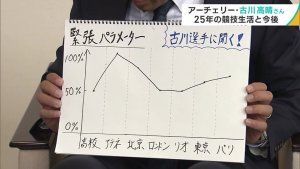 アーチェリー・古川高晴さん
25年の競技生活と今後
緊張パラメーター
古川選手に聞く!
100%
50%
0%
高校 アテネ 北京 ロンドン リオ 東京 パリ